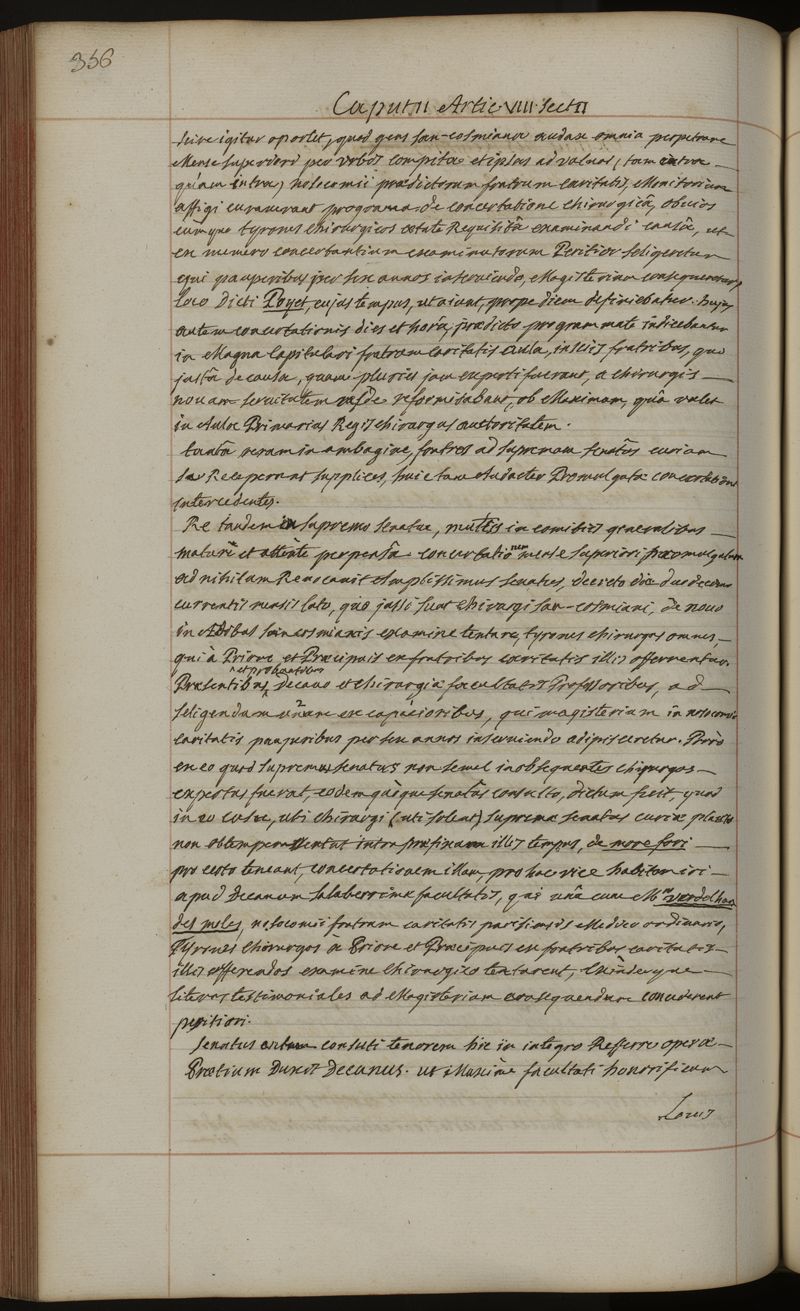 356
Caput II Artic. VIII Sect II
scire igitur oportet, quod gens san-cosmiana audax omnia perpetrare
Mense superiori per urbis compita et ipsas ad valvas, (tam extra
quam intra) nosocomii praedictorum fratrum caritatis, Monitorium
affigi curaverant programma de concertatione chirurgicâ, obvios
cùmque tyrones chirurgicos aetate Requisitâ examinandi causâ, ut
ex numero concertantium examinatorum Peritior seligeretur
qui pauperibus per sex annos inserviendo, Magisterium consequeretur,
loco dicti Poyet, cujus tempus, ut aiunt, prope diem definiebatur. hujus
autem concertationis dies et hora, praedicto programmate indicebantur
in Magna Capitulari fratrum caritatis Aula, insciis fratribus, qui
justâ de causâ, quam pluries jam experti fuerant, a chirurgis
novam servitutem valde reformidabant, ob Maximam, quâ valet
in Aulâ Primarius Regis chirurgus auctoritatem.
tantâ rerum in ambagine, fratres ad supremam senatûs curiam
se Receperunt supplices, huic tam audacter Promulgatae concertationi
intercedentes.
Re tandem in supremo senatu, multis in comitiis generalibus
maturè et attentè perpensâ concertationem mense superiori promulgatam
ad nihilum Revocavit Amplissimus senatus, decreto die duodecimo
currentis mensis lato, quo jussi sunt chirurgi san-cosmiani, de novo
in Aedibus san cosmianis examine tentare, tyrones chirurgos omnes,
qui à Priore et Praecipuis ex fratribus caritatis illis offerrentur
Praesentibus et probantibus Decano et chirurgiae facultatis Professoribus, ad
seligendum unum ex capacioribus, qui magisterium in nosocomio
caritatis pauperibus per sex annos inserviendo adipisceretur. Porrò
ex eo quod supremus senatus non semel inobsequentes chirurgos
expertus fuerat, eodem quoque senatûs consulto, dictum fecit, quod
in eo casu, ubi chirurgi (uti solent) supremae senatus curiae placito
non obtemperent intra praefixum illis tempus, de more fori
pro certo teneant, concertationem illam, pro hac vice habitum iri
apud Decanum saluberrimae facultatis, qui unâ cum Mro verdelhan
des moles, nosocomii fratrum caritatis parisiensis Medico ordinario,
Tyrones chirurgos à Priore et Praecipuis ex fratribus caritatis
illis offerendos examine chirurgico tentarent,
literas testimoniales ad Magisterium consequendum concederent
peritiori.
Senatus consulti tenorem hic in integro Referre operae
Praetium Duxit Decanus. ut Maximè facultati honorificum